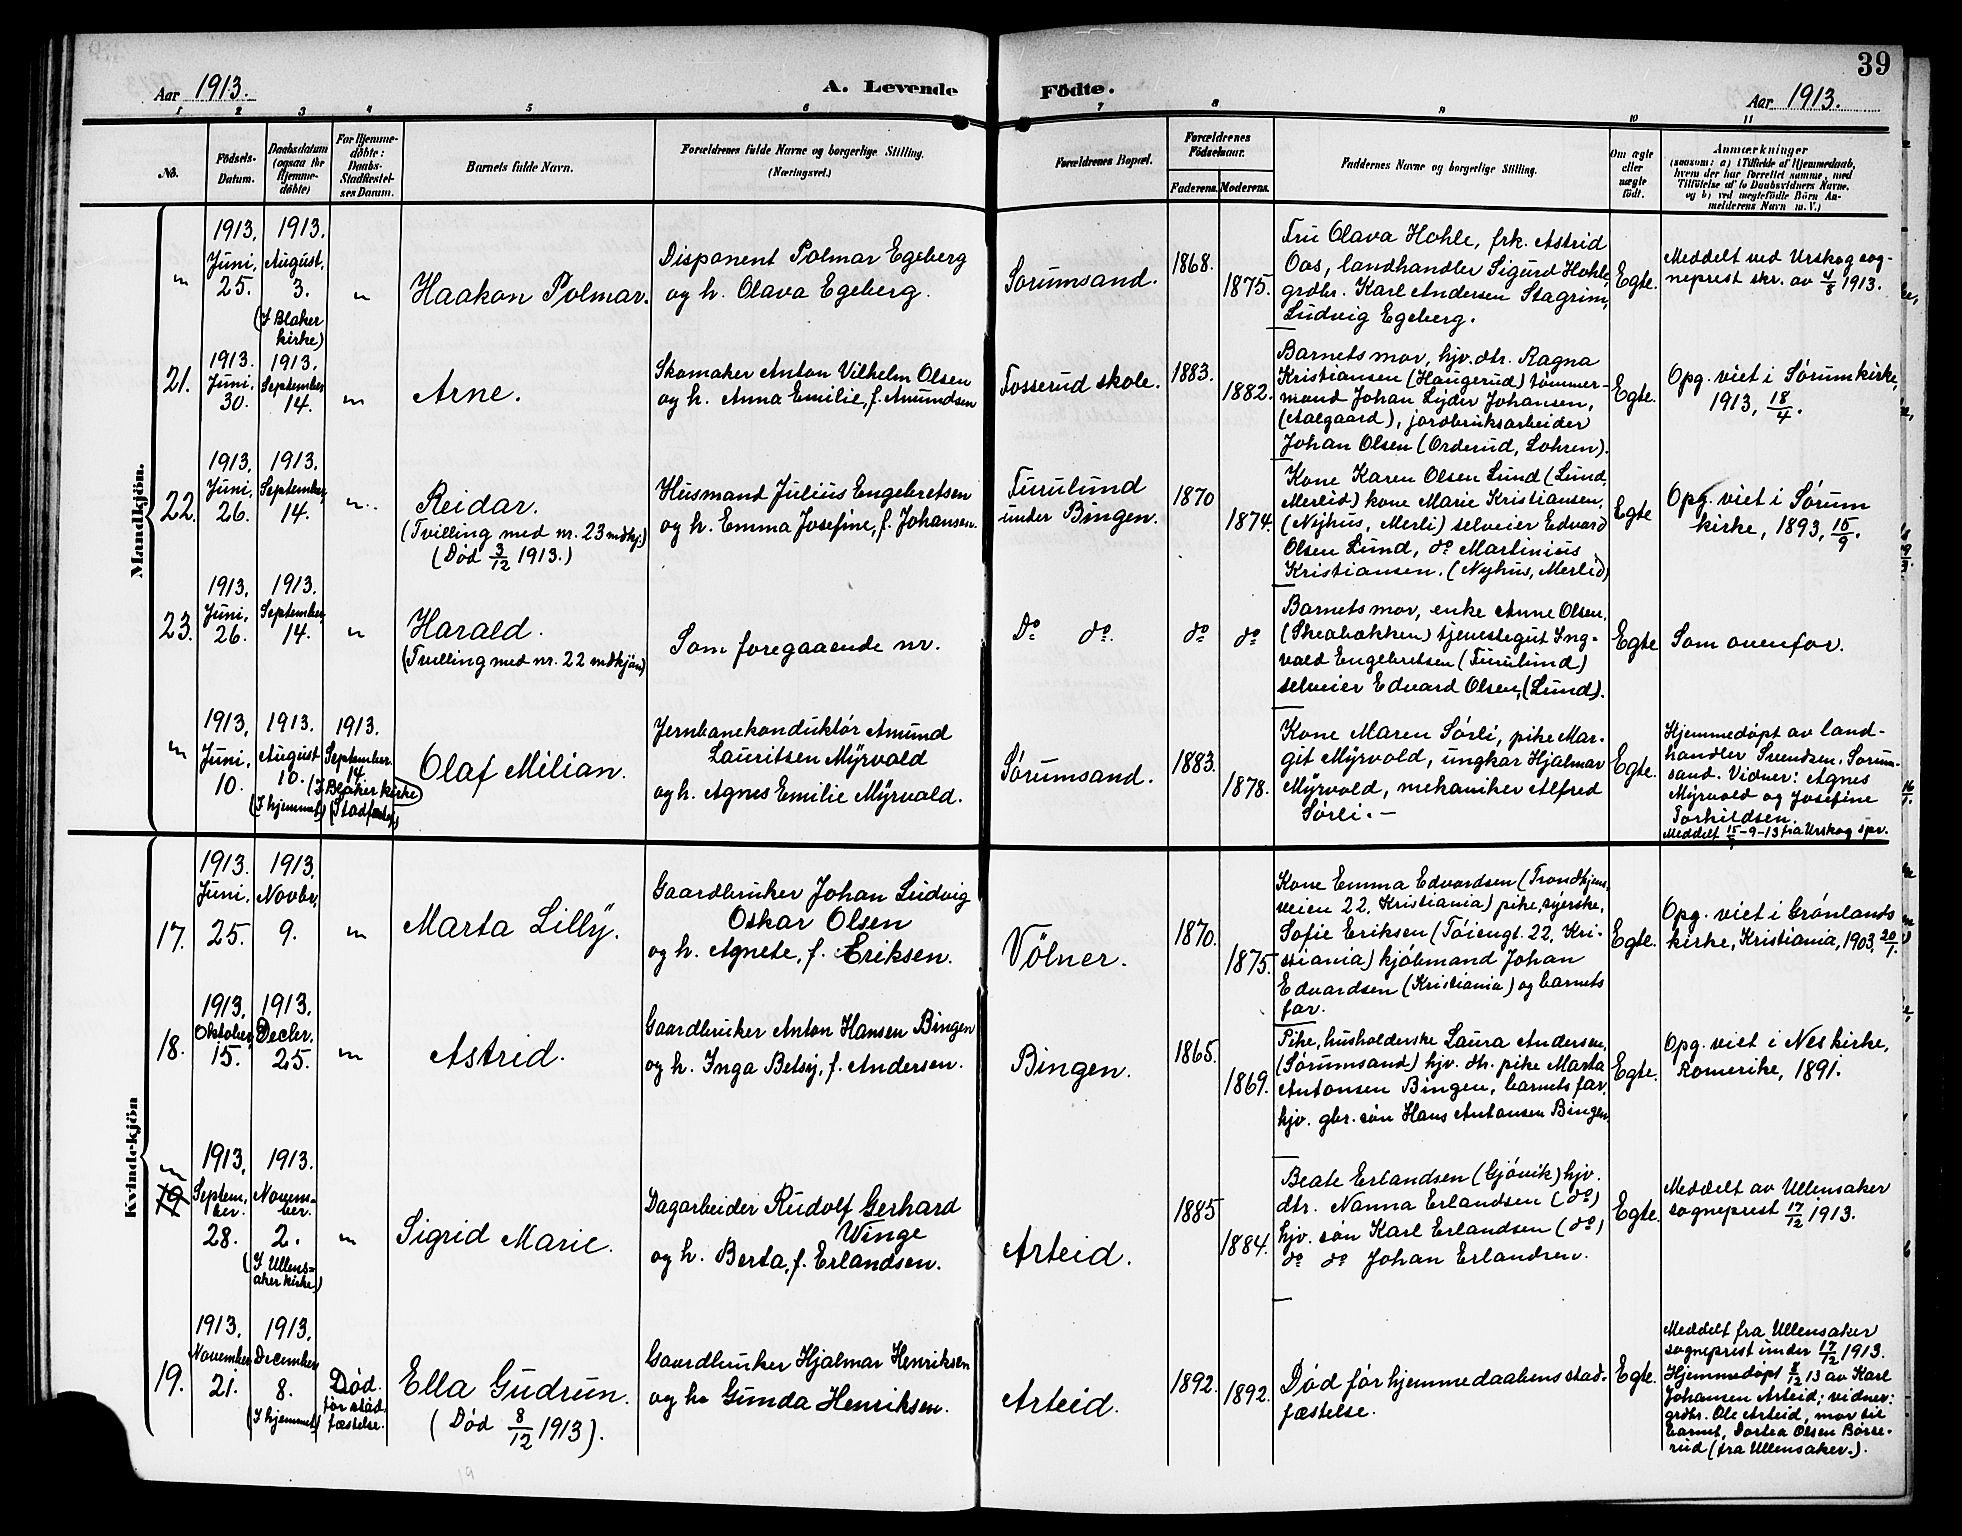 39
Aar 1913.
A. Levende
Födte.
Aar 1913.
1 2 3 4 5 6 7 8 9 10 11
No.
Födsels-
Datum.
Daabsdatum
(ogsaa for
Hjemme-
döbte)
For Hjemme-
döbte:
Daabs-
Stadfæstel-
ses Datum.
Barnets fulde Navn.
Forældrenes fulde Navne og borgerlige Stilling.
(Næringsvei.)
Forældrenes Bopæl.
Forældrenes
Födselsaar.
Faderens.
Moderens.
Faddernes Navne og borgerlige Stilling.
Om ægte
eller
uægte
födt.
Anmærkninger
(saasom: a) i Tilfælde af Hjemmedaab,
hvem der har forrettet samme, med
Tilföielse af to Daabsvidners Navne,
og b) ved uægtefödte Börn An-
melderens Navn m. V.)
Mandkjön.
"
1913.
Juni.
25.
1913.
August.
3.
(I Blaker
kirke)
"
Haakon Polmar.
Disponent Polmar Egeberg
og h. Olava Egeberg.
Sørumsand.
1868.
1875.
Fru Olava Hohle, frk. Astrid
Oos, landhandler Sigurd Hohle,
grdbr. Karl Andersen Stagrim,
Ludvig Egeberg.
Egte.
Meddelt ved Urskog sog-
neprest skr. av 4/8 1913.
21.
1913.
Juni.
30.
1913.
September
14.
"
Arne.
Skomaker Anton Vilhelm Olsen
og h. Anna Emilie, f. Amundsen
Fosserud skole.
1883.
1882.
Barnets mor, hjv. dtr. Ragna
Kristiansen (Haugerud) tømmer-
mand Johan Lyder Johansen,
(Aalgaard), jordbruksarbeider
Johan Olsen (Orderud, Lohren).
Egte.
Opg. viet i Sørum kirke,
1913, 18/4.
22.
1913.
Juni.
26.
1913.
September
14.
"
Reidar.
(Tvilling med nr. 23 mdkj.)
(Død 3/12 1913.)
Husmand Julius Engebretsen
og h. Emma Josefine, f. Johansen.
Furulund
under Bingen.
1870
1874.
Kone Karen Olsen Lund (Lund,
Merlid) kone Marie Kristiansen,
(Nyhus, Merli) selveier Edvard
Olsen Lund, do Martinius
Kristiansen. (Nyhus, Merlid)
Egte
Opg. viet i Sørum
kirke, 1893, 15/9.
23.
1913.
Juni.
26.
1913.
September
14.
"
Harald.
(Tvilling med nr. 22 mdkjøn)
Som foregaaende nr.
Do do.
do
do
Barnets mor, enke Anne Olsen,
(Skeabakken) tjenestegut Ing-
vald Engebretsen (Furulund)
selveier Edvard Olsen, (Lund).
Egte
Som ovenfor.
"
1913.
Juni.
10.
1913.
August
10.
(I hjemmet)
1913.
September.
14.
(I Blaker kirke
Stadfæstet)
Olaf Milian.
Jernbanekonduktør Amund
Lauritsen Myrvold
og h. Agnes Emilie Myrvold.
Sørumsand.
1883.
1878.
Kone Maren Sørli, pike Mar-
git Myrvold, ungkar Hjalmar
Myrvold, mekaniker Alfred
Sørli. -
Egte.
Hjemmedøpt av land-
handler Svendsen, Sørum-
sand. Vidner: Agnes
Myrvold og Josefine
Torkildsen.
Meddelt 15-9-13 fra Urskog spr.
Kvindekjön
17.
1913.
Juni.
25.
1913.
Novbr.
9.
"
Marta Lilly.
Gaardbruker Johan Ludvig
Oskar Olsen
og h. Agnete, f. Eriksen.
Vølner.
1870.
1875.
Kone Emma Edvardsen (Trondhjems-
veien 22, Kristiania) pike, syerske,
Sofie Eriksen (Tøiengt. 22, Kri-
stiania) kjølmand Johan
Edvardsen (Kristiania) og barnets
far.
Egte.
Opg. viet i Grønlands
kirke, Kristiania, 1903, 20/1.
18.
1913.
Oktober
15.
1913.
Decbr.
25.
"
Astrid.
Gaardbruker Anton Hansen Bingen
og h. Inga Betsy, f. Andersen.
Bingen.
1865.
1869.
Pike, husholderske Laura Andersen,
(Sørumsand) hjv. dtr. pike Marta
Antonsen Bingen, barnets far,
hjv. gbr. søn Hans Antonsen Bingen.
Egte.
Opg. viet i Nes kirke,
Romerike, 1891.
"
19
1913.
Septem-
ber.
28.
1913.
Novem-
ber.
2.
(I Ullens-
aker kirke)
"
Sigrid Marie.
Dagarbeider Rudolf Gerhard
Winge
og h. Berta, f. Erlandsen.
Arteid.
1885
1884.
Beate Erlandsen (Gjøvik) hjv.
dtr. Nanna Erlandsen (do)
hjv. søn Karl Erlandsen (do)
do do Johan Erlandsen.
Egte.
Meddelt av Ullensaker
sogneprest 17/12 1913.
19.
1913.
November
21.
1913.
December
8.
(I hjemmet)
Død.
før stad-
fæstelse.
Ella Gudrun.
(Død 8/12 1913).
Gaardbruker Hjalmar Henriksen
og h. Gunda Henriksen.
Arteid.
1892.
1892.
Død før hjemmedaabens stad-
fæstelse.
Egte.
Meddelt fra Ullensaker
sogneprest under 17/12 1913.
Hjemmedøpt 8/12 13 av Karl
Johansen Arteid; vidner:
grdbr. Ole Arteid, mor til
barnet, Dortea Olsen Børse-
rud (fra Ullensaker.).